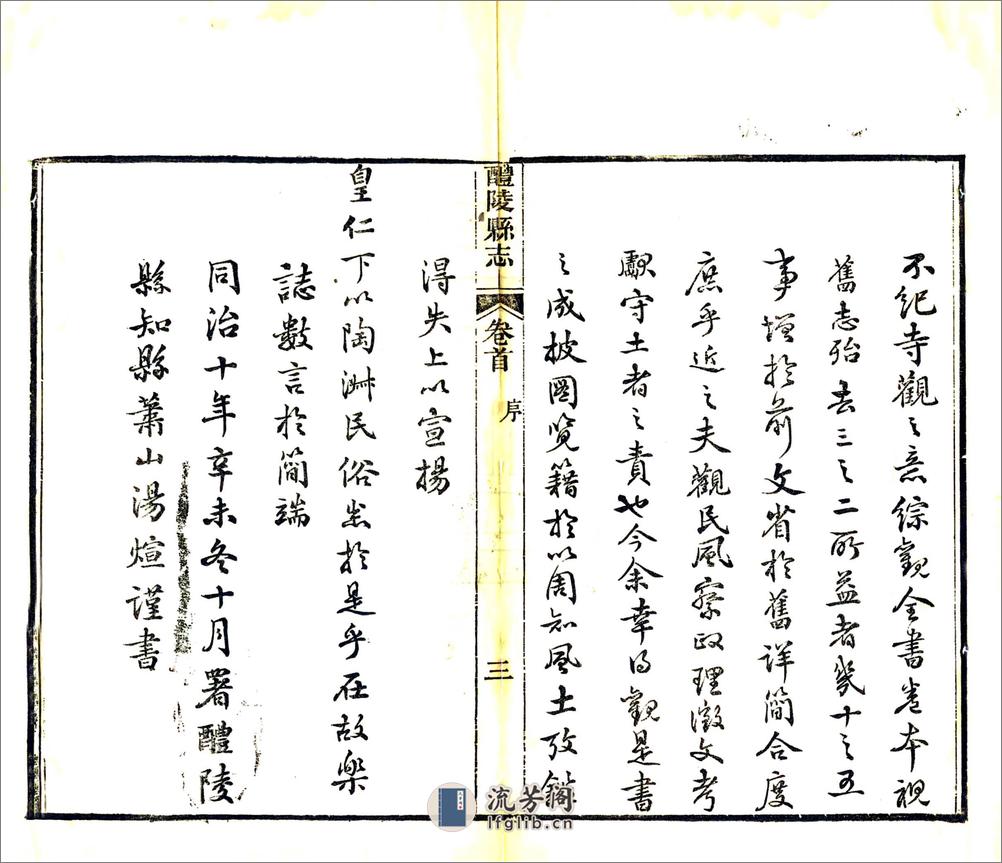 不紀寺觀之意綜觀全書卷本視
舊志殆去三之二所益者幾十之五
事增於前文省於舊詳簡合度
庶乎近之夫觀民風察政理徵文考
獻守土者之責也今余幸得觀是書
之成披圖覽籍於以周知風土攷鏡
醴陵縣志
卷首
序
三
得失上以宣揚
皇仁下以陶淑民俗悉於是乎在故樂
誌數言於簡端
同治十年辛未冬十月署醴陵
縣知縣蕭山湯煊謹書
流芳阁
lfglib.cn